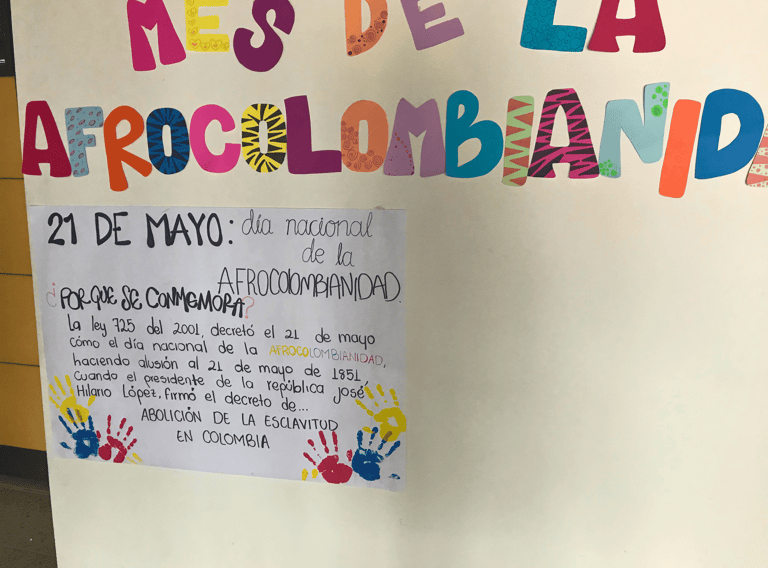 MES DE LA
AFROCOLOMBIANIDA
21 DE MAYO: día nacional
de la
AFROCOLOMBIANIDAD.
¿PORQUE SE CONMEMORA?
La ley 725 del 2001, decretó el 21 de mayo
cómo el día nacional de la AFROCOLOMBIANIDAD,
haciendo alusión al 21 de mayo de 1851,
Cuando el presidente de la república josé
Hilario López, firmó el decreto de...
ABOLICIÓN DE LA ESCLAVITUD
EN COLOMBIA